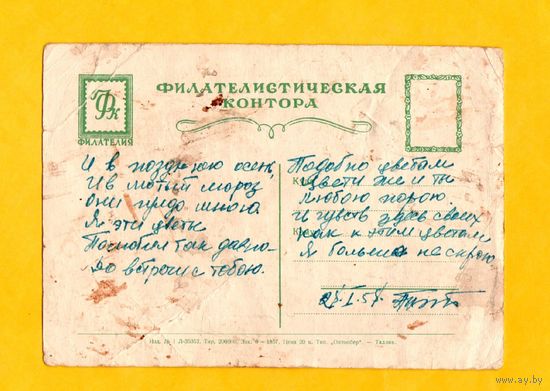 ГФК
ФИЛАТЕЛИЯ
ФИЛАТЕЛИСТИЧЕСКАЯ
КОНТОРА
И в позднюю осень,
И в лютый мороз
Они предо мною.
Я эти цветы
Полюбил так давно
До встречи с тобою.
Подобно цветам
Цвети же и ты
Любою порою
И чувств здесь своих
как к этим цветам
Я больше не скрою
I.57.
Изд. № 1 Л-35352. Тир. 20000. Зак. - 1957. Цена 20 к. Тип. „Октообер". — Таллин.
www.ay.by